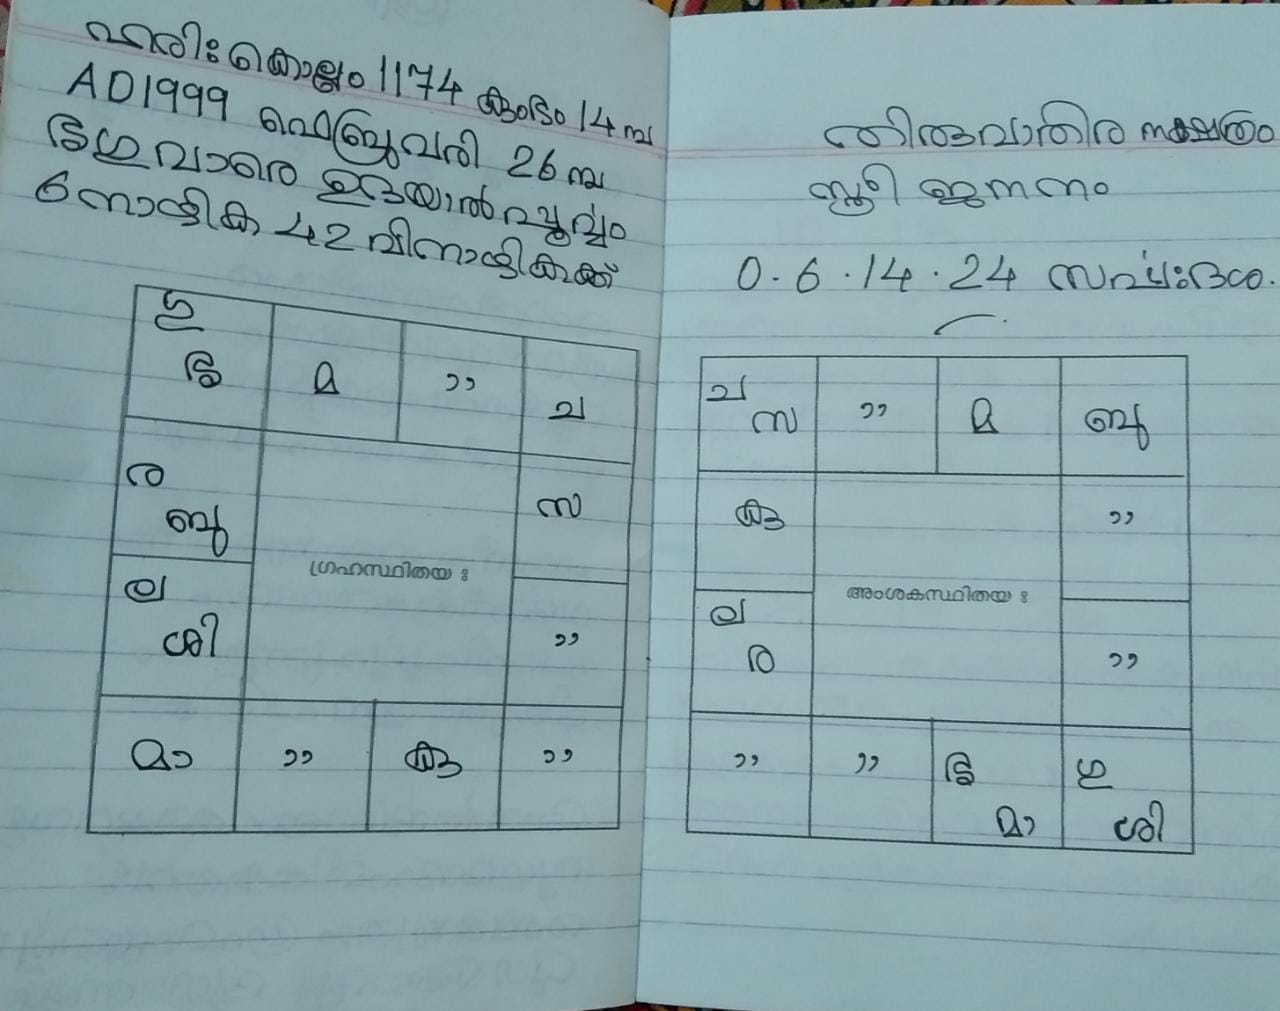 ഹരിഃ കൊല്ലം 1174 കുംഭം 14 നു
AD 1999 ഫെബ്രുവരി 26 നു
ഭൃഗുവാരെ ഉദയാൽപൂർവ്വം
6 നാഴിക 42 വിനാഴികക്ക്
ഗു
ഭൃ
മ
,,
ച
ര
ബു
സ
ഗ്രഹസ്ഥിതയഃ
ല
ശി
,,
മാ
,,
കു
,,
തിരുവാതിര നക്ഷത്രം
സ്ത്രീ ജനനം
0 . 6 . 14 . 24 സർപ്പിഃദശ.
ച
സ
,,
മ
ബു
കു
,,
അംശകസ്ഥിതയഃ
ല
ര
,,
,,
,,
ഭൃ
മാ
ഗു
ശി